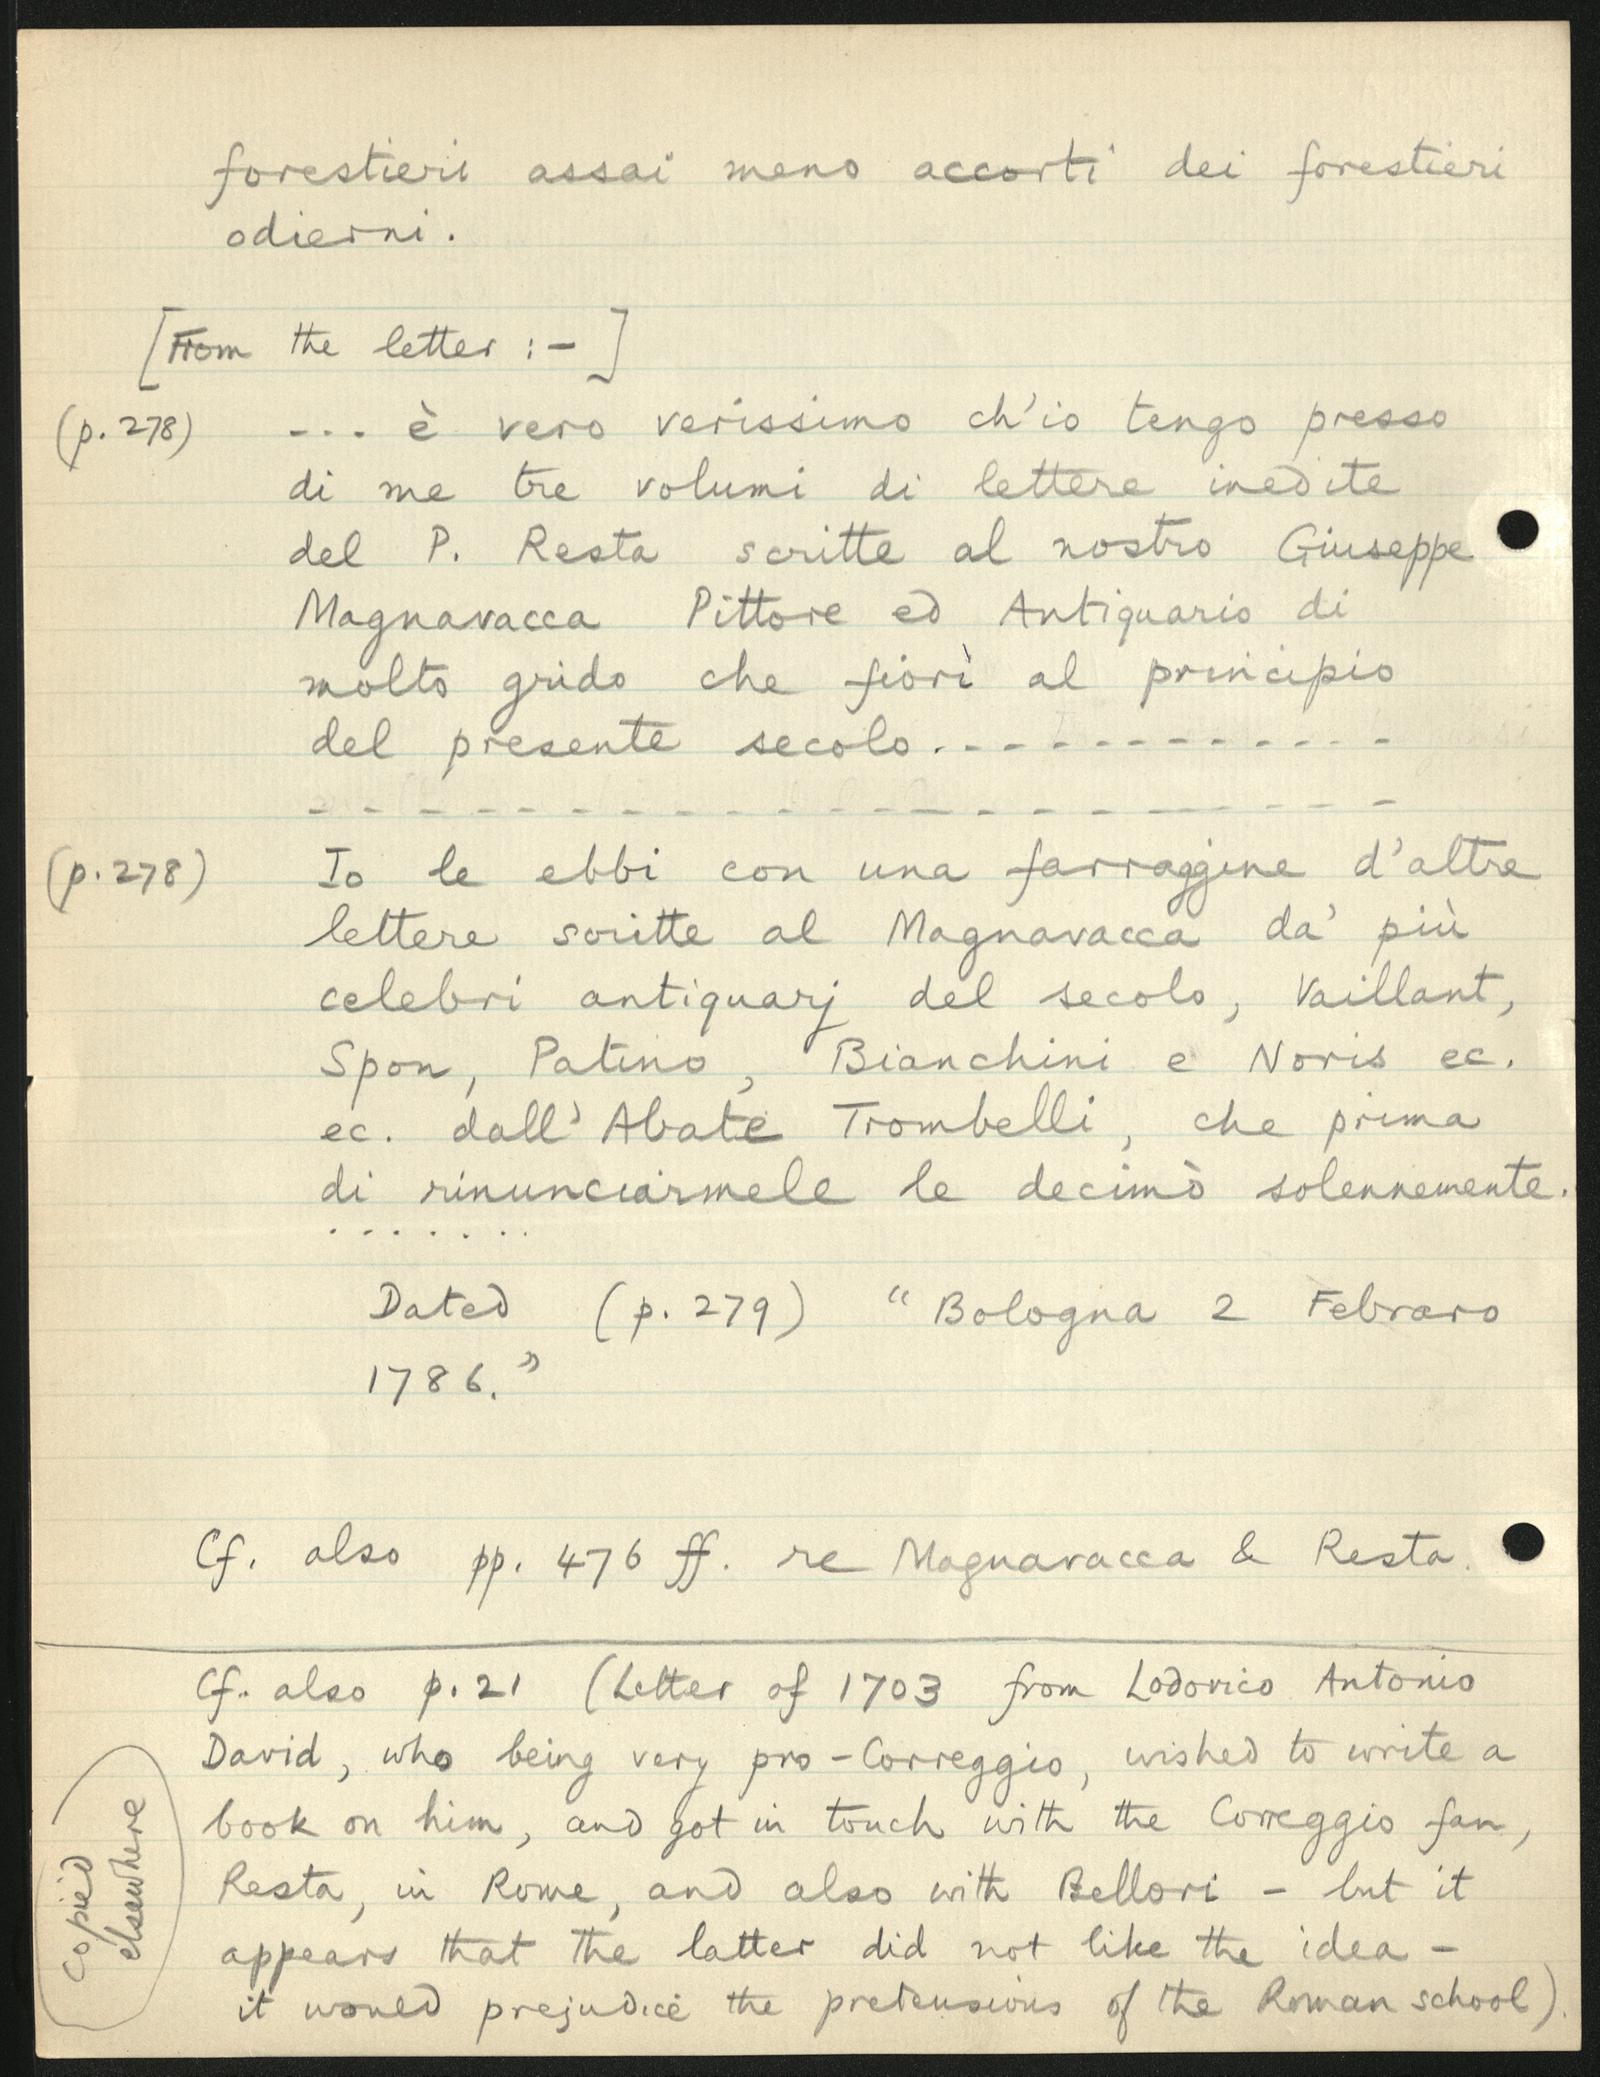 forestieri assai meno accorti dei forestieri
odierni.
[From the letter :-]
(p. 278) --- è vero verissimo ch'io tengo presso
di me tre volumi di lettere inedite
del P. Resta scritte al nostro Giuseppe
Magnavacca Pittore ed Antiquario di
molto grido che fiorì al principio
del presente secolo.------------
--------------------
(p. 278) Io le ebbi con una farraggine d'altre
lettere scritte al Magnavacca da' più
celebri antiquarj del secolo, Vaillant,
Spon, Patino, Bianchini e Noris ec.
ec. dall' Abate Trombelli, che prima
di rinunciarmele le decimò solennemente.
.......
Dated (p. 279) "Bologna 2 Febraro
1786."
Cf. also pp. 476 ff. re Magnavacca & Resta.
Cf. also p. 21 (Letter of 1703 from Lodovico Antonio
David, who being very pro-Correggio, wished to write a
book on him, and got in touch with the Correggio fan,
Resta, in Rome, and also with Bellori - but it
appears that the latter did not like the idea -
it would prejudice the pretensions of the Roman school).
copied
elsewhere